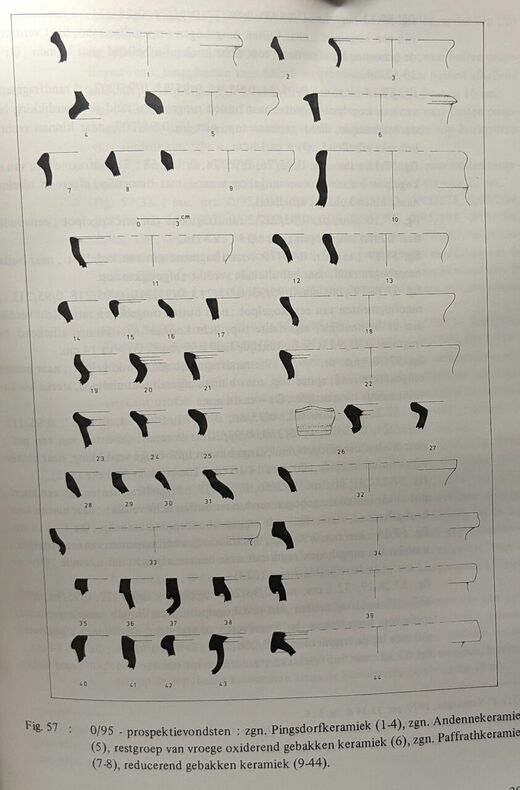 1 2 3
4 5 6
7 9 10
cm
0 3
11 12 13
14 15 16 17 18
19 20 21 22
23 24 25 26 27
28 29 30 31 32
33 34
35 36 37 38 39
40 41 42 43 44
Fig. 57 : 0/95 - prospektievondsten : zgn. Pingsdorfkeramiek (1-4), zgn. Andennekeramie
(5), restgroep van vroege oxiderend gebakken keramiek (6), zgn. Paffrathkeramie
(7-8), reducerend gebakken keramiek (9-44).